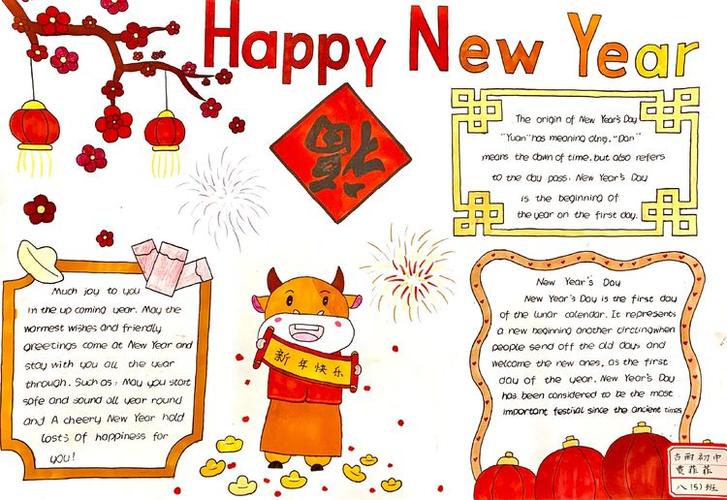 Happy New Year
福
The origin of New Year's Day
"Yuan" has meaning dlng, "Dan"
means the dawn of time, but also refers
to the day pass. New Year's Day
is the beginning of
the year on the first day.
Much joy to you
in the up coming year. May the
warmest wishes and friendly
greetings come at New Year and
stay with you all the year
through. Such as: May you start
safe and sound all year round
and A cheery New Year hold
losts of happiness for
you!
新年快乐
New Year's Day
New Year's Day is the first day
of the lunar calendar. It represents
a new beginning another when
people send off the old days and
welcome the new ones, as the first
day of the year, New Year's Day
has been considered to be the most
important festival since the ancient times
初中
黄菲菲
八(5)班